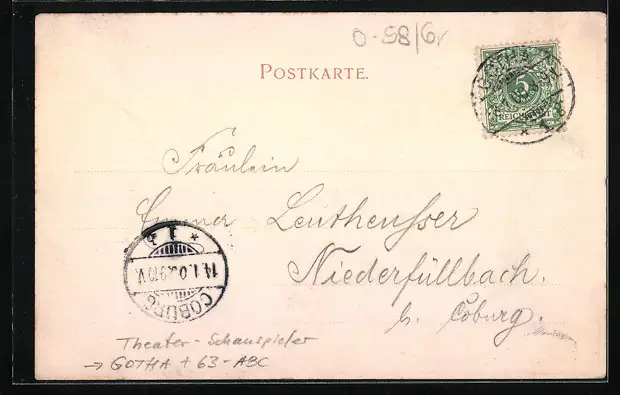 O-58/6r
POSTKARTE.
GOTHA
5
REICHSPOST
Fräulein
Emma Leutheusser
Niederfüllbach.
b. Coburg.
COBURG
Theater - Schauspieler
→ GOTHA + 63 - ABC